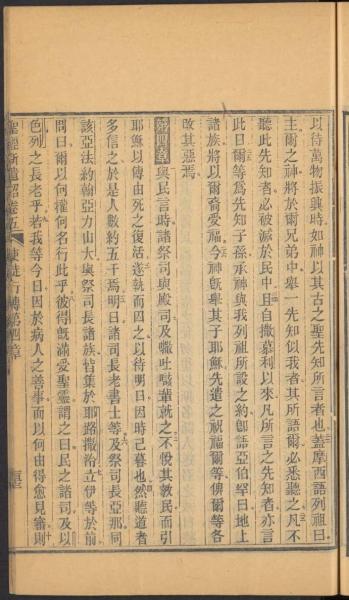 以待萬物振興時如神以其古之聖先知所言者也蓋摩西語列祖曰
主爾之神將於爾兄弟中舉一先知似我者其所語爾必悉聽之凡不
聽此先知者必被滅於民中且自撒慕利以來凡所言之先知者亦言
此日爾等爲先知子孫承神與我列祖所設之約卽語亞伯罕曰地上
諸族將以爾裔愛福今神旣舉其子耶穌先遣之祝福爾等俾爾等各
改其惡焉
與民言時諸祭司與殿司及
輩就之不悅其敎民而引
耶穌以傳由死之復活遂執而囚之以待明日因時已暮也然聽道者
多信之於是人數約五千焉明日諸司長老書士等及祭司長亞那同
該亞法約翰亞力山大與祭司長諸族皆集於耶路撒冷立伊等於前
問曰爾以何權何名行此乎彼得旣滿受聖靈謂之曰民之諸司及以
色列之長老乎若我等今日因於病人之善事而以何由得愈見審則
聖經新遺詔卷五